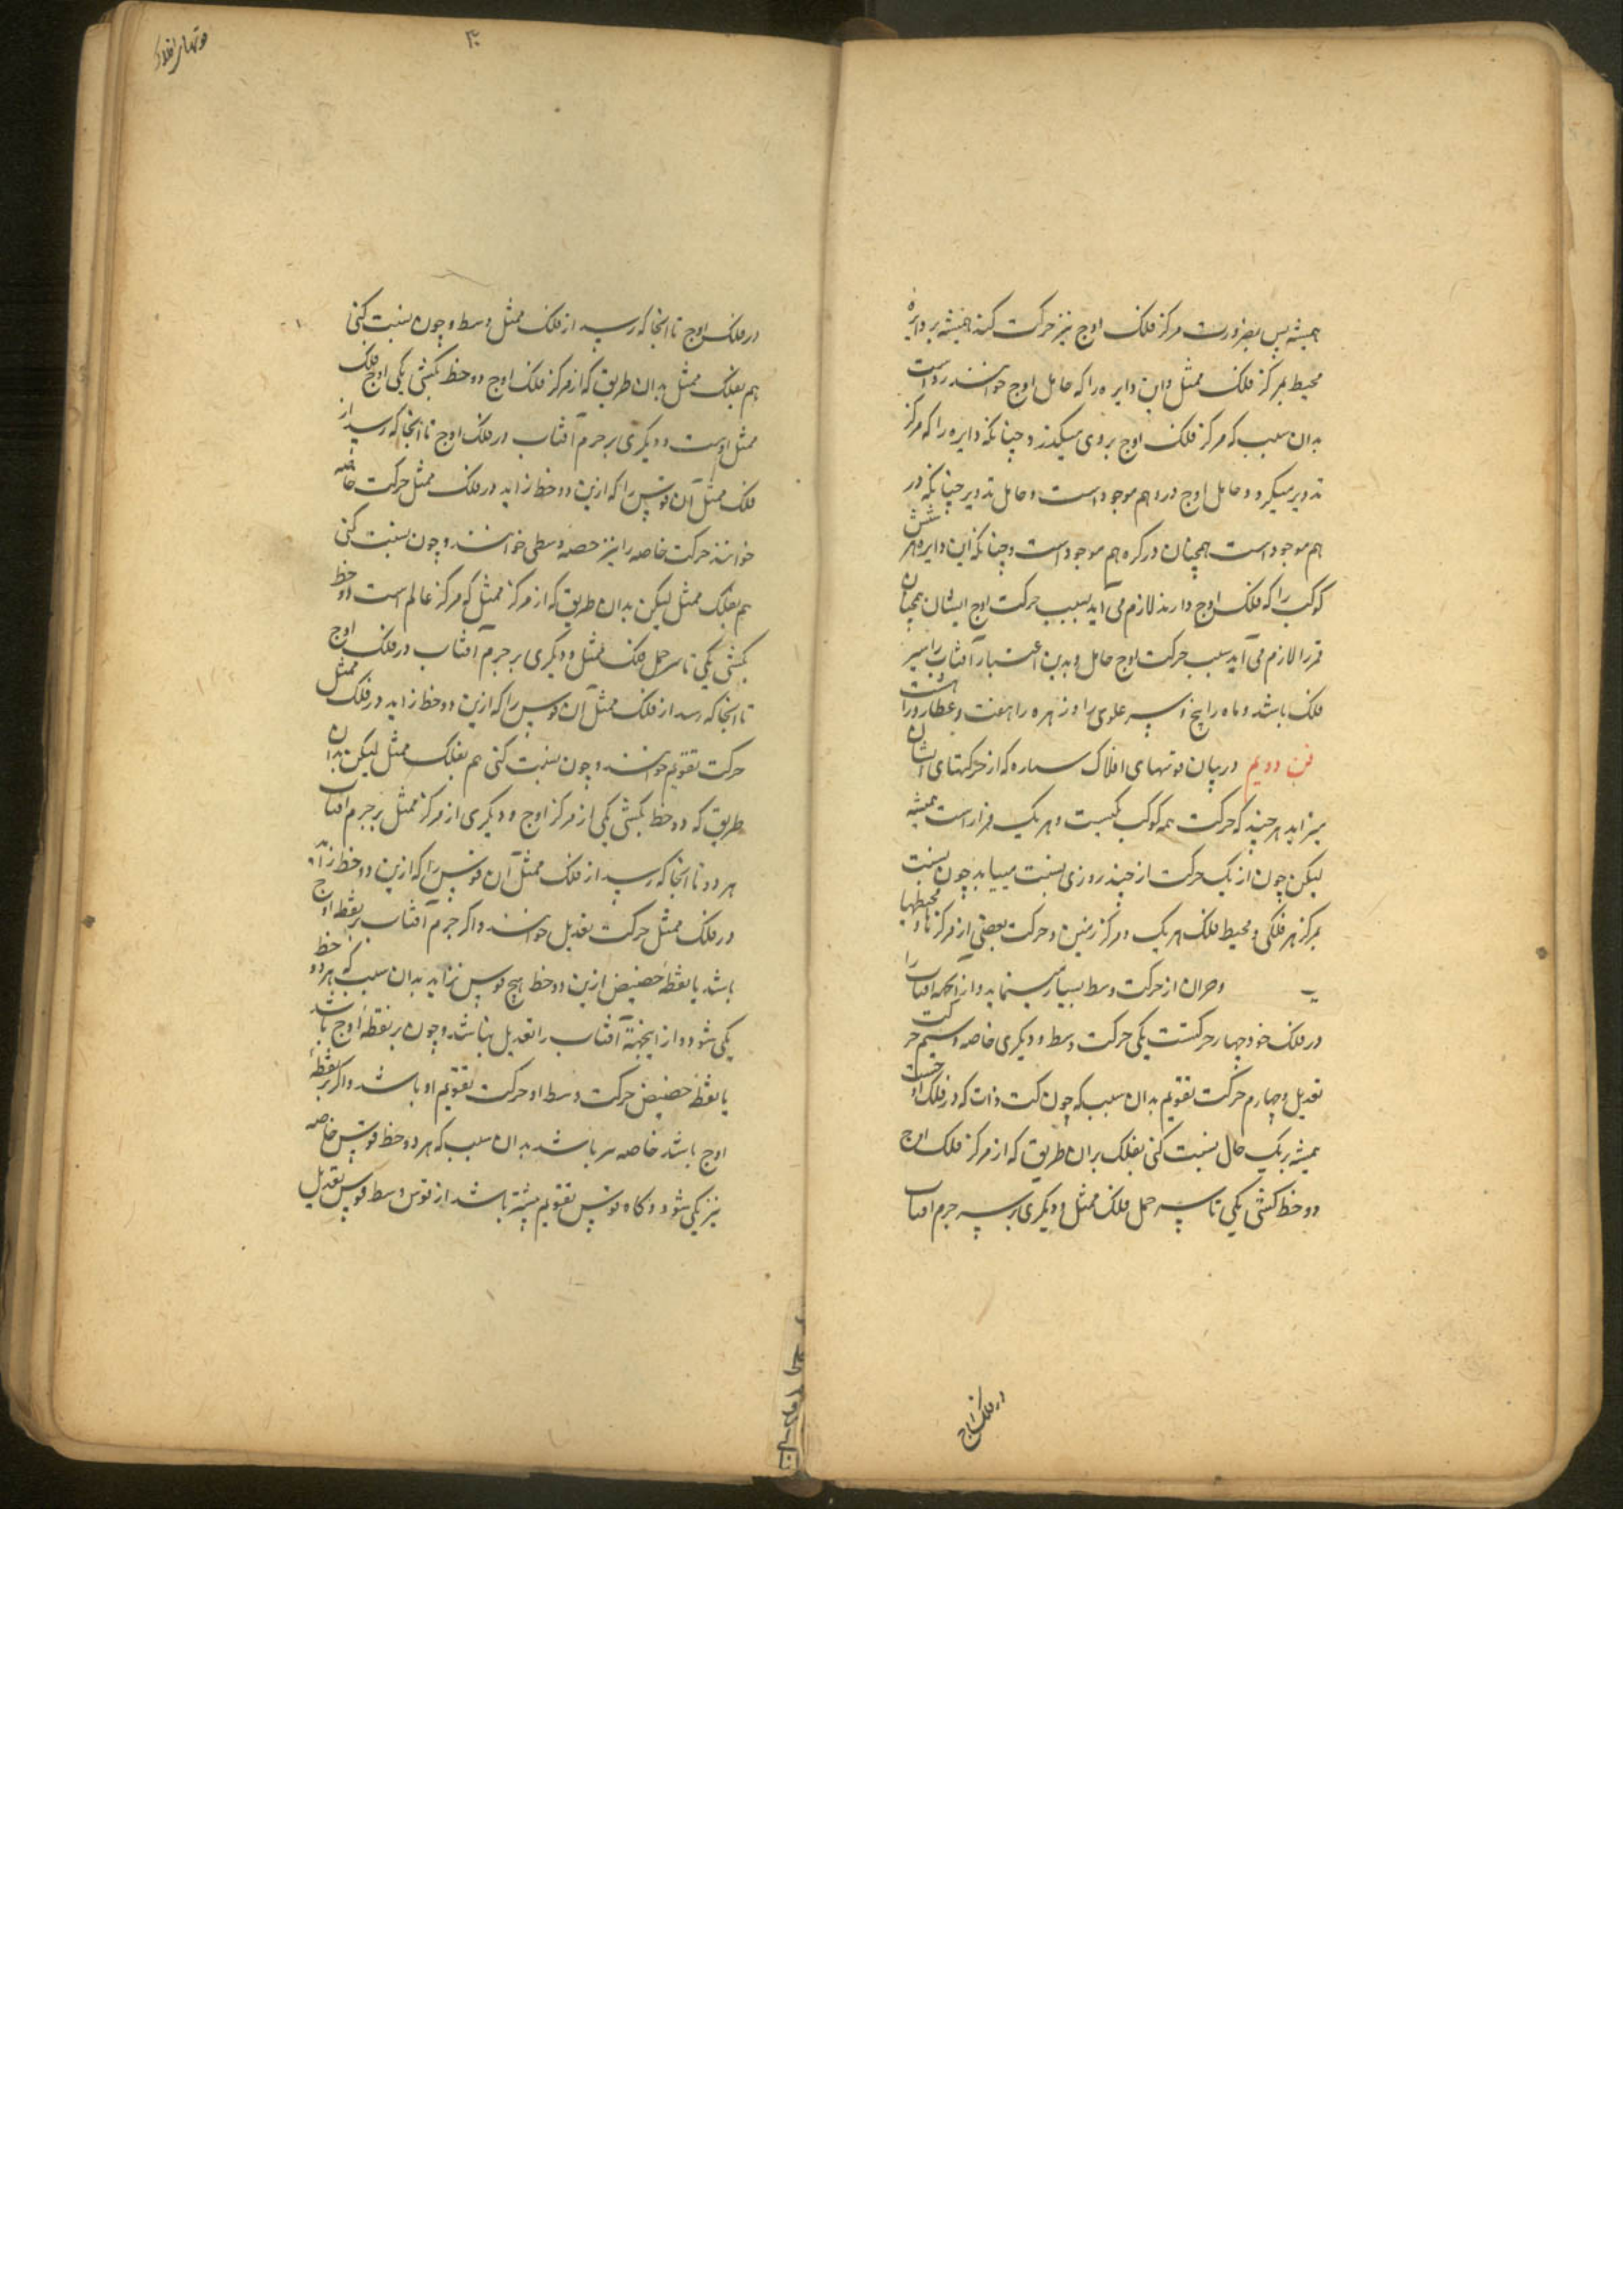 همیشه پس بضرورت مرکز فلک اوج نیز حرکت کند همیشه بر دایرهٔ
محیط بمرکز فلک ممثل و این دایره را که حامل اوج خوانند رواست
بدان سبب که مرکز فلک اوج بروی میگذرد چنانکه دایره را که مرکز
تدویر میگرد و حامل اوج در وهم موجود است و حامل تدویر چنانکه در
هم موجود است همچنان در کره هم موجود است و چنانکه این دایره هر شش
کوکب را که فلک اوج دارند لازم می آید بسبب حرکت اوج ایشان همچنان
قمر را لازم می آید سبب حرکت اوج حامل و بدین اعتبار آفتاب را سپر
فلک باشد و ماه را پنج و سپر علوی را و زهره را هفت و عطارد را هشت
فن دویم در بیان قوتهای افلاک سیاره که از حرکتهای ایشان
میزاید هر چند که حرکت همه کوکب یکیست و هر یک قرار است همیشه
لیکن چون از یک حرکت از چند روزی نسبت مییابد چون نسبت
بمرکز هر فلکی و محیط فلک هر یک و مرکز زمین و حرکت بعضی از مرکزها و محیطها
از حرکت وسط بسیار مینماید و از آنکه آفتاب را
در فلک خود چهار حرکتست یکی حرکت وسط و دیگری خاصه و سیم حرکت
تعدیل و چهارم حرکت تقویم بدان سبب که چون ذات که در فلک اوجست
همیشه بر یک حال نسبت کنی بفلک بران طریق که از مرکز فلک اوج
دو خط کشی یکی تا سر حمل فلک ممثل و دیگری بر سر جرم آفتاب
در فلک اوج
۳۰
قوتهای افلاک
در فلک اوج تا آنجا که رسد از فلک ممثل وسط و چون نسبت کنی
هم بفلک ممثل بدان طریق که از مرکز فلک اوج دو خط بکشی یکی اوج فلک
ممثل اوست و دیگری بر جرم آفتاب در فلک اوج تا آنجا که رسد از
فلک ممثل آن قوس را که ازین دو خط زاید در فلک ممثل حرکت خاصه
خوانند حرکت خاصه را نیز حصه وسطی خوانند و چون نسبت کنی
هم بفلک ممثل لیکن بدان طریق که از مرکز ممثل که مرکز عالم است دو خط
بکشی یکی تا سر حمل فلک ممثل و دیگری بر جرم آفتاب در فلک اوج
تا آنجا که رسد از فلک ممثل آن قوس را که ازین دو خط زاید در فلک ممثل
حرکت تقویم خوانند و چون نسبت کنی هم بفلک ممثل لیکن بدان
طریق که دو خط بکشی یکی از مرکز اوج و دیگری از مرکز ممثل بر جرم آفتاب
هر دو تا آنجا که رسد از فلک ممثل آن قوس را که ازین دو خط زاید
در فلک ممثل حرکت تعدیل خوانند و اگر جرم آفتاب بر نقطه اوج
باشد یا نقطهٔ حضیض ازین دو خط هیچ قوس نزاید بدان سبب که هر دو خط
یکی شود و از اینجهة آفتاب را تعدیل نباشد و چون بر نقطهٔ اوج باشد
یا نقطهٔ حضیض حرکت وسط او حرکت تقویم او باشد و اگر بر نقطهٔ
اوج باشد خاصه سر باشد بدان سبب که هر دو خط قوس خاصه
نیز یکی شود و گاه قوس تقویم بیشتر باشد از قوس وسط قوس تعدیل